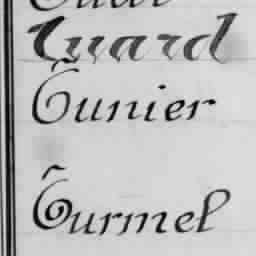 Guard
Gunier
Gurmel